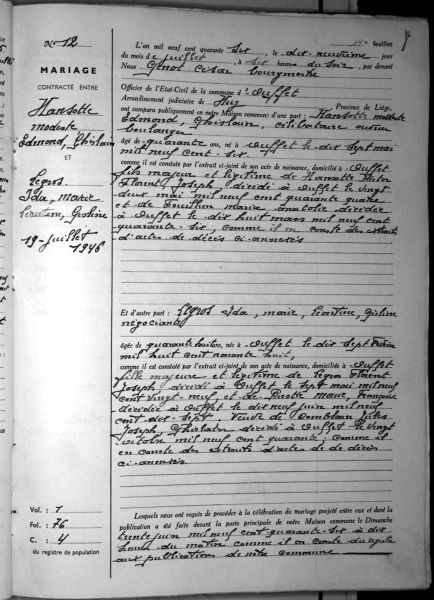 No 12
MARIAGE
CONTRACTÉ ENTRE
Hansotte
modeste
Edmond, Ghislain
ET
Legros
Ida, marie
Léontine, Gisline
19-juillet
1946
Vol. : 1
Fol. : 76
C. : 4
du registre de population
feuillet
L'an mil neuf cent quarante six, le dix-neuvième jour
du mois de juillet, à six heures du soir, par devant
Nous Genot César bourgmestre
Officier de l'Etat-Civil de la commune d' Ouffet
Arrondissement judiciaire de Huy Province de Liége,
ont comparu publiquement en notre Maison commune d'une part : Hansotte modeste
Edmond, Ghislain, célibataire ancien
boulanger
âgé de quarante ans, né à Ouffet le dix sept mai
mil neuf cent-six.
comme il est constaté par l'extrait ci-joint de son acte de naissance, domicilié à Ouffet
fils majeur et légitime de Hansotte Jules
Florent, Joseph, décédé à Ouffet le vingt
deux mai mil neuf cent quarante quatre
et de Fouillien Maria Anatolie décédée
à Ouffet le dix huit mars mil neuf cent
quarante-six, comme il en conste des extraits
d'actes de décès ci-annexés
Et d'autre part : Legros Ida, marie, Léontine, Gisline
négociante
âgée de quarante huit ans, née à Ouffet le dix sept
mil huit cent nonante huit,
comme il est constaté par l'extrait ci-joint de son acte de naissance, domiciliée à Ouffet
fille majeure et légitime de Legros Florent
Joseph, décédé à Ouffet le sept mai mil neuf
cent vingt-neuf et de Marie, Françoise
décédée à Ouffet le dix neuf juin mil neuf
cent dix-sept veuve de Jules
Joseph, Ghislain décédé à Ouffet le vingt
octobre mil neuf cent quarante; comme il
en conste des extraits d'actes de décès
ci-annexés
Lesquels nous ont requis de procéder à la célébration du mariage projeté entre eux et dont la
publication a été faite devant la porte principale de notre Maison commune le Dimanche
trente juin mil neuf cent-quarante-six à dix
heures du matin comme il en conste du registre
aux publications de notre commune